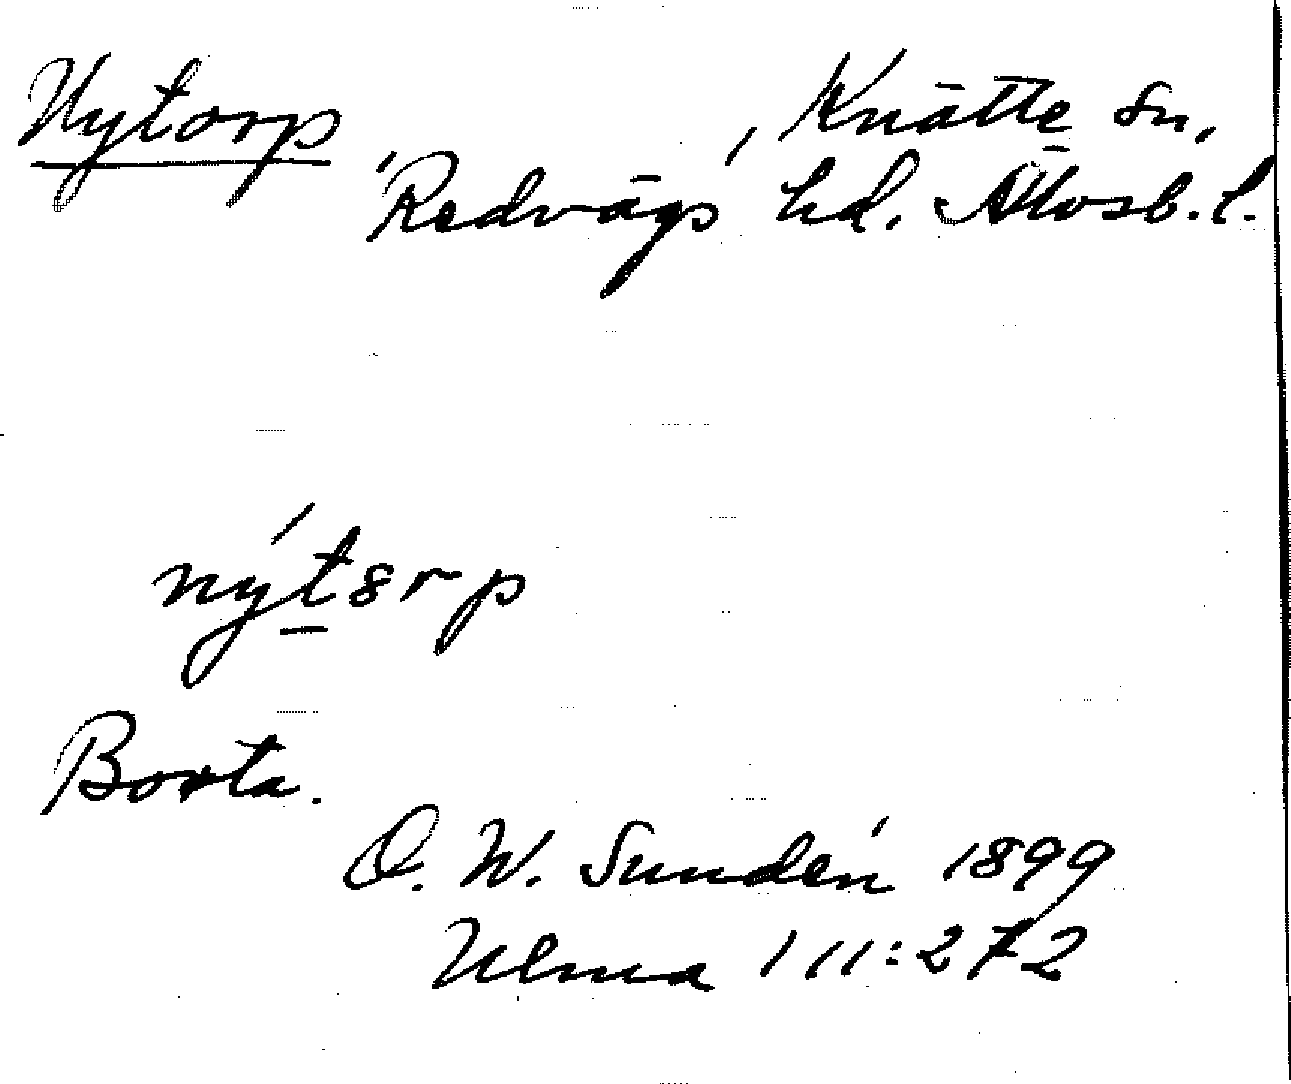 Nytorp, Knätte sn,
Redvägs hd. Älvsb. l.
nýtsrp
Borta.
O. W. Sundén 1899
Ulma 111:272